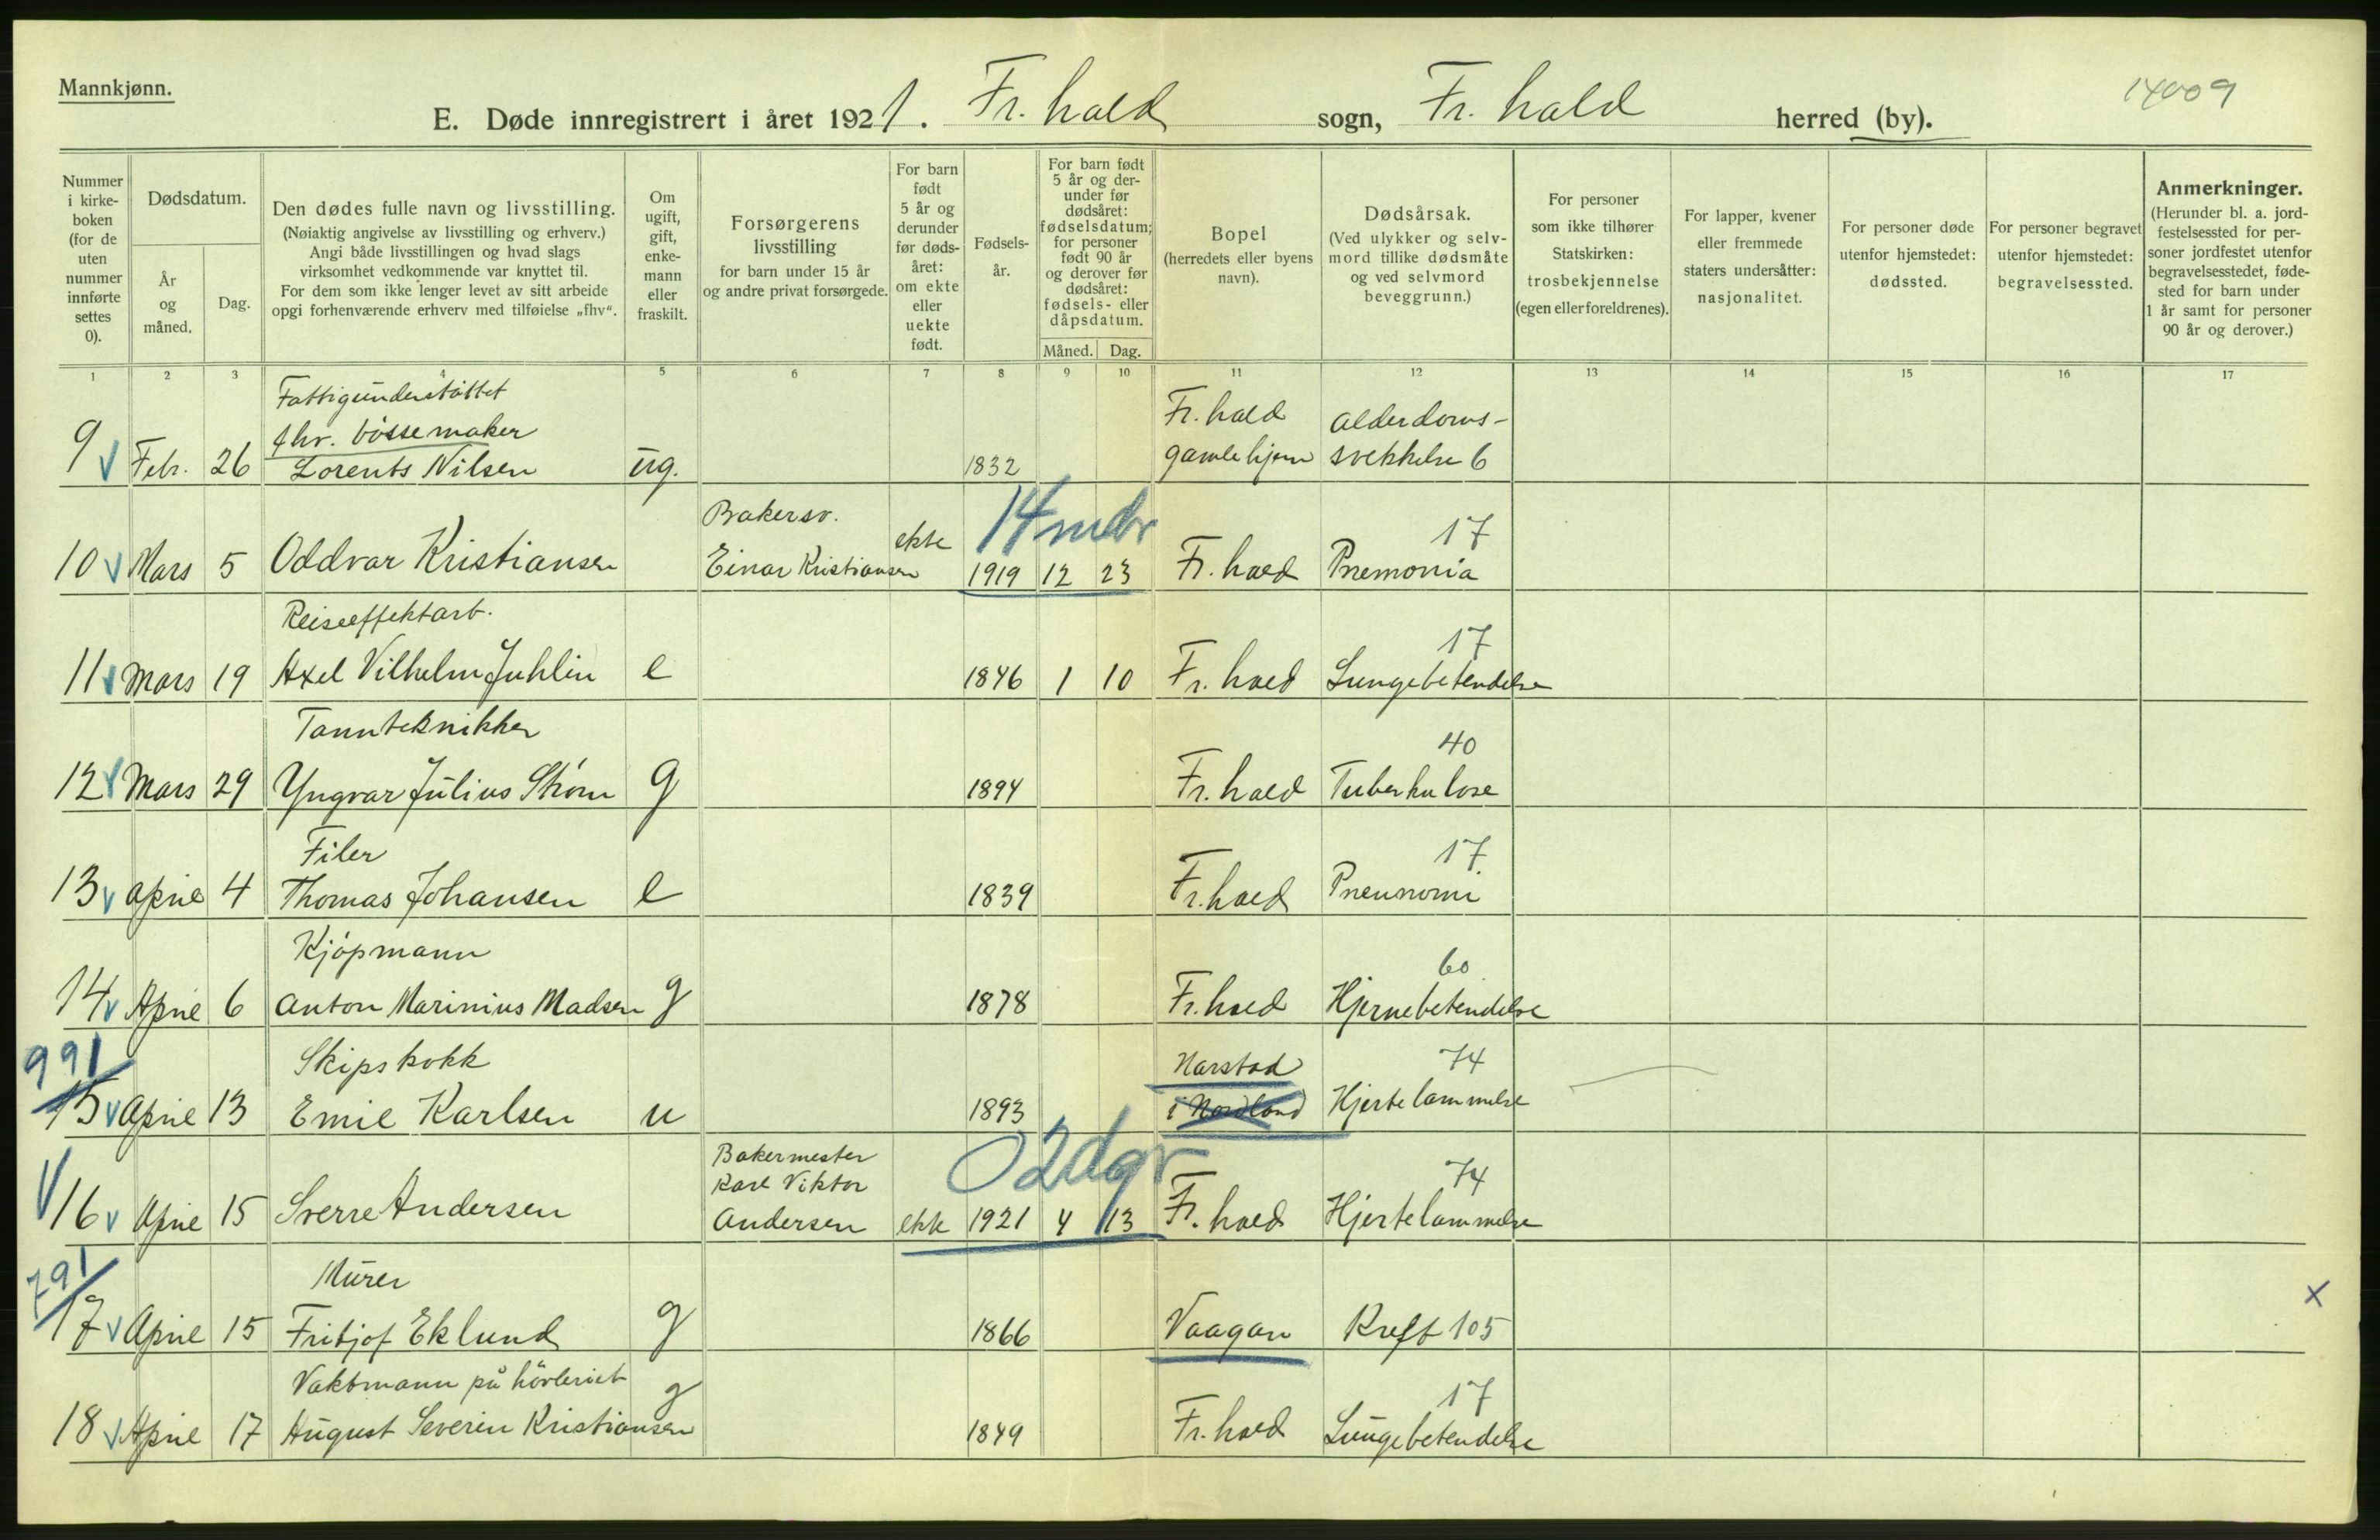 Mannkjønn.
14009
E. Døde innregistrert i året 1921. Fr.hald sogn, Fr. hald herred (by).
Nummer i kirkeboken (for de uten nummer innførte settes 0).
Dødsdatum.
År og måned.
Dag.
Den dødes fulle navn og livsstilling.
(Nøiaktig angivelse av livsstilling og erhverv.)
Angi både livsstillingen og hvad slags
virksomhet vedkommende var knyttet til.
For dem som ikke lenger levet av sitt arbeide
opgi forhenværende erhverv med tilføielse „fhv“.
Om ugift, gift, enkemann eller fraskilt.
Forsørgerens livsstilling
for barn under 15 år
og andre privat forsørgede.
For barn født 5 år og derunder før dødsåret: om ekte eller uekte født.
Fødselsår.
For barn født 5 år og derunder før dødsåret: fødselsdatum; for personer født 90 år og derover før dødsåret: fødsels- eller dåpsdatum.
Måned. Dag.
Bopel
(herredets eller byens navn).
Dødsårsak.
(Ved ulykker og selvmord tillike dødsmåte og ved selvmord beveggrunn.)
For personer som ikke tilhører Statskirken: trosbekjennelse (egen eller foreldrenes).
For lapper, kvener eller fremmede staters undersåtter: nasjonalitet.
For personer døde utenfor hjemstedet: dødssted.
For personer begravet utenfor hjemstedet: begravelsessted.
Anmerkninger.
(Herunder bl. a. jordfestelsessted for personer jordfestet utenfor begravelsesstedet, fødested for barn under 1 år samt for personer 90 år og derover.)
1 2 3 4 5 6 7 8 9 10 11 12 13 14 15 16 17
Fattigunderstøttet
fhv. bøssemaker Fr. hald alderdoms-
9 Febr. 26 Lorents Nilsen ug. 1832 gamlehjem svekkelse 6
Bakersv. 14 mdr 17
10 Mars 5 Oddvar Kristiansen Einar Kristiansen ekte 1919 12 23 Fr. hald Pnemonia
Reiseeffektarb. 17
11 Mars 19 Axel Vilhelm Juhlin e 1846 1 10 Fr. hald Lungebetendelse
Tannteknikker 40
12 Mars 29 Yngvar Julius Strøm g 1894 Fr. hald Tuberkulose
Filer 17
13 April 4 Thomas Johansen e 1839 Fr. hald Pneunomi
Kjøpmann 60
14 April 6 Anton Marinius Madsen g 1878 Fr. hald Hjernebetendelse
991 Skipskokk Narstad 74
15 April 13 Emil Karlsen u 1893 i Nordland Hjertelammelse
Bakermester 02dgr
Karl Viktor 74
16 April 15 Sverre Andersen Andersen ekte 1921 4 13 Fr. hald Hjertelammelse
791 Murer x
17 April 15 Fritjof Eklund g 1866 Vaagan Kreft 105
Vaktmann på høvleriet 17
18 April 17 August Severin Kristiansen g 1849 Fr. hald Lungebetendelse